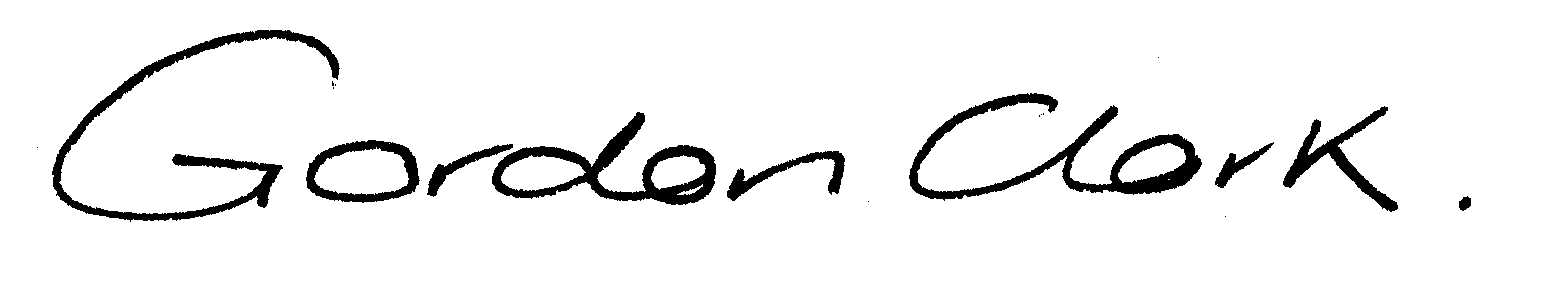 Gordon Clark.